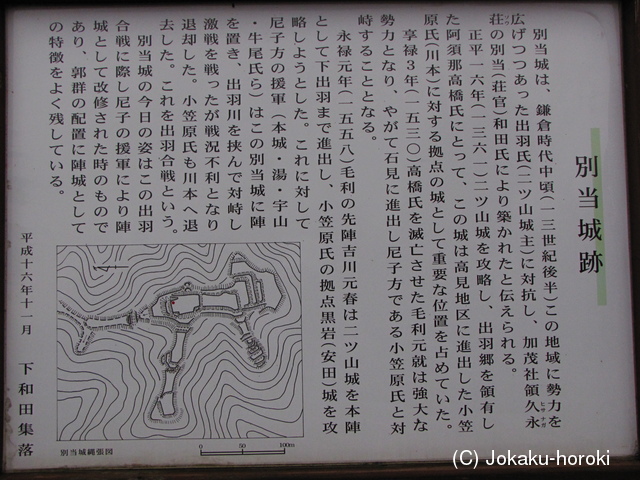 別当城跡
別当城は、鎌倉時代中頃(一三世紀後半)この地域に勢力を
広げつつあった出羽氏(二ツ山城主)に対抗し、加茂社領久永
ヒサナガ
荘の別当(荘官)和田氏により築かれたと伝えられる。
正平一六年(一三六一)二ツ山城を攻略し、出羽郷を領有し
た阿須那高橋氏にとって、この城は高見地区に進出した小笠
原氏(川本)に対する拠点の城として重要な位置を占めていた。
享禄3年(一五三〇)高橋氏を滅亡させた毛利元就は強大な
勢力となり、やがて石見に進出し尼子方である小笠原氏と対
峙することとなる。
永禄元年(一五五八)毛利の先陣吉川元春は二ツ山城を本陣
として下出羽まで進出し、小笠原氏の拠点黒岩(安田)城を攻
略しようとした。これに対して
尼子方の援軍(本城・湯・宇山
・牛尾氏ら)はこの別当城に陣
を置き、出羽川を挟んで対峙し
激戦を戦ったが戦況不利となり
退却した。小笠原氏も川本へ退
去した。これを出羽合戦という。
別当城の今日の姿はこの出羽
合戦に際し尼子の援軍により陣
城として改修された時のもので
あり、郭群の配置に陣城として
の特徴をよく残している。
平成十六年十一月 下和田集落
別当城縄張図
0 50 100m
(C) Jokaku-horoki